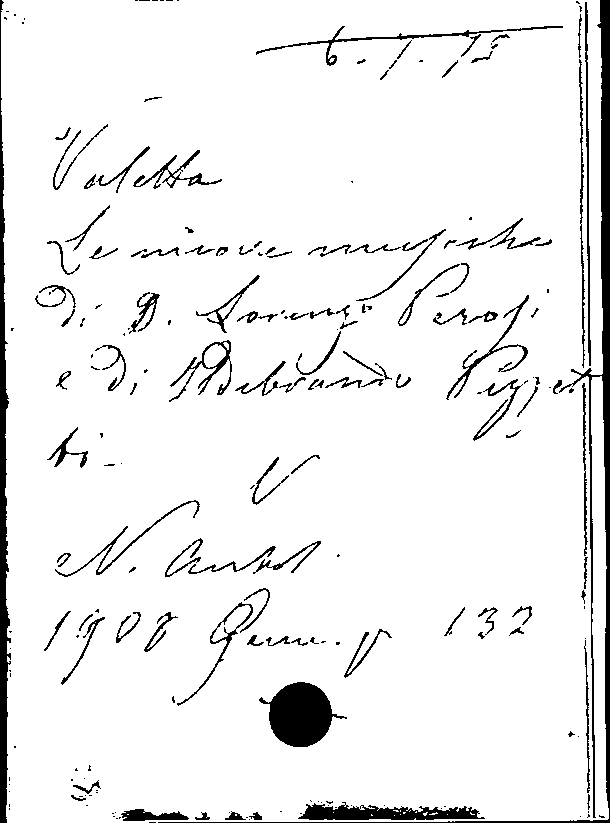 6.7.75
Valetta
Le nuove musiche
di D. Lorenzo Perosi
e di Ildebrando Pizzet
ti -
V
N. Antol.
1908 Genn. p 132